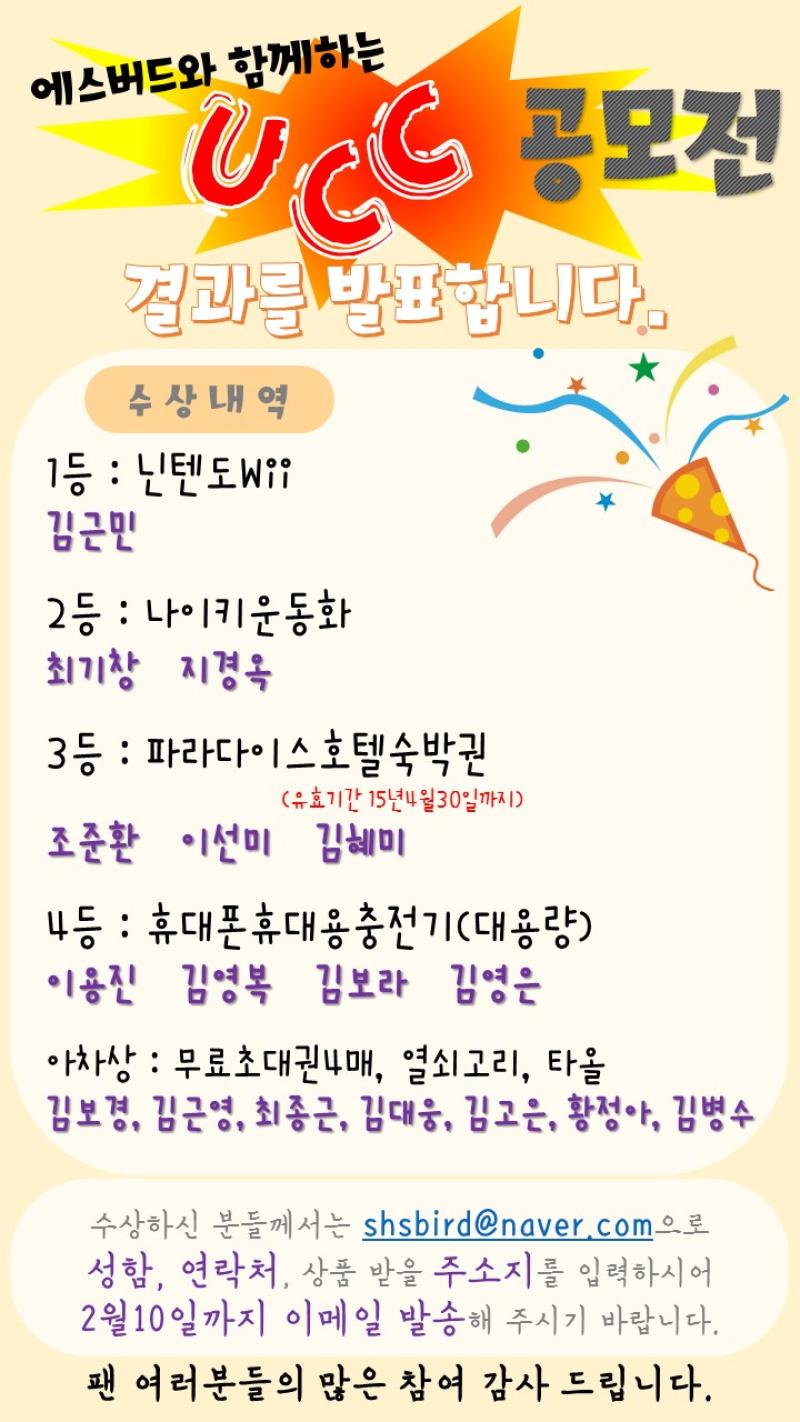 에스버드와 함께하는
UCC 공모전
결과를 발표합니다.
수상내역
1등 : 닌텐도Wii
김근민
2등 : 나이키운동화
최기창 지경옥
3등 : 파라다이스호텔숙박권
(유효기간 15년4월30일까지)
조준환 이선미 김혜미
4등 : 휴대폰휴대용충전기(대용량)
이용진 김영복 김보라 김영은
아차상 : 무료초대권4매, 열쇠고리, 타올
김보경, 김근영, 최종근, 김대웅, 김고은, 황정아, 김병수
수상하신 분들께서는 shsbird@naver.com으로
성함, 연락처, 상품 받을 주소지를 입력하시어
2월10일까지 이메일 발송해 주시기 바랍니다.
팬 여러분들의 많은 참여 감사 드립니다.